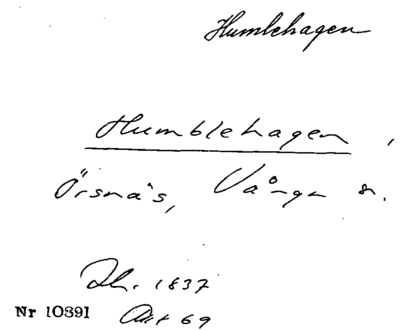 Humlehagen
Humblehagen,
Örsnäs, Vånga sn.
Lh. 1837
Nr 10391 Akt 69